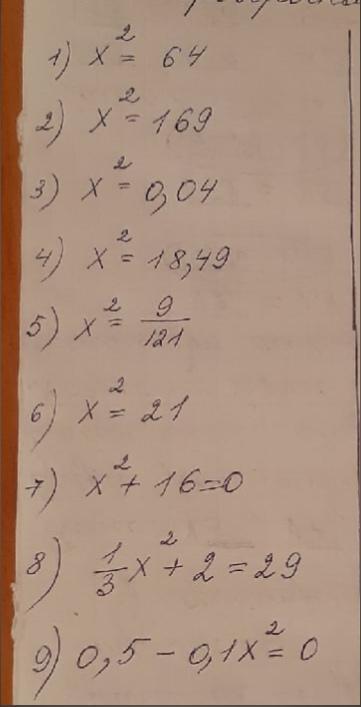 1) x² = 64
2) x² = 169
3) x² = 0,04
4) x² = 18,49
5) x² = 9/121
6) x² = 21
7) x² + 16 = 0
8) 1/3 x² + 2 = 29
9) 0,5 - 0,1x² = 0